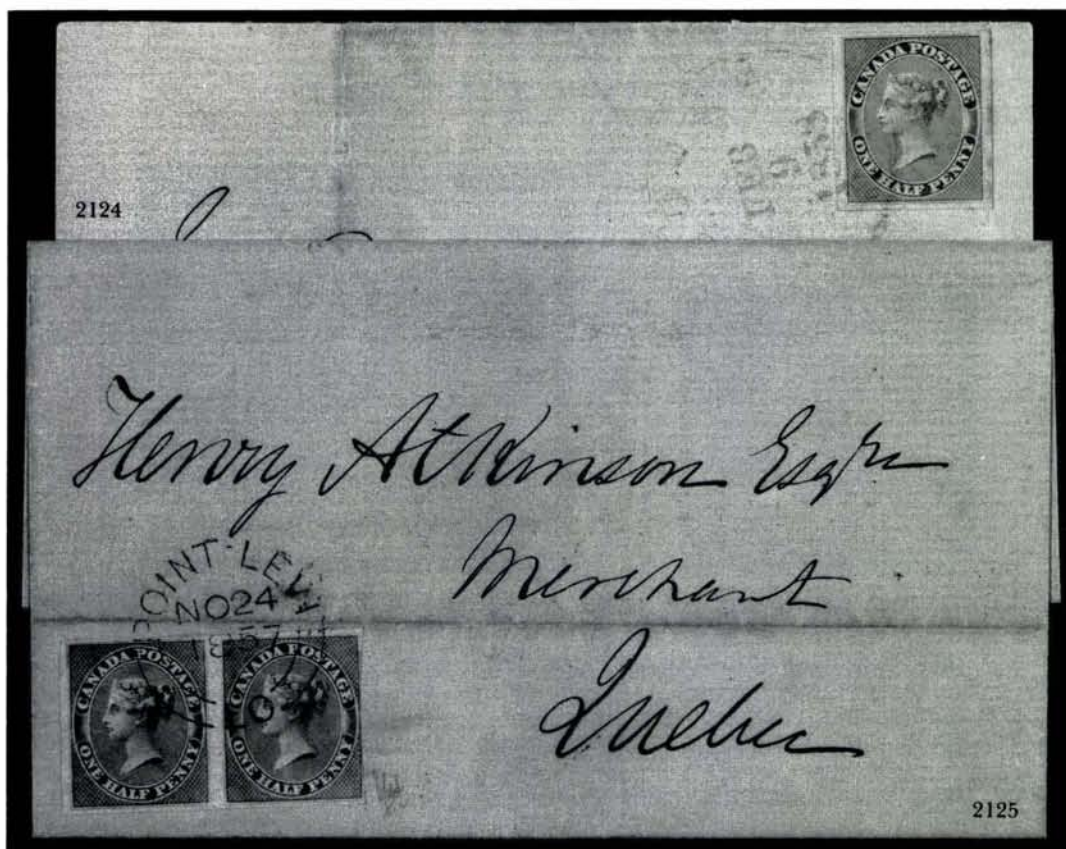 CANADA POSTAGE
ONE HALF PENNY
2124
Henry Atkinson Esqre
Merchant
Quebec
POINT-LEVI
NO 24
1857
CANADA POSTAGE
ONE HALF PENNY
CANADA POSTAGE
ONE HALF PENNY
2125